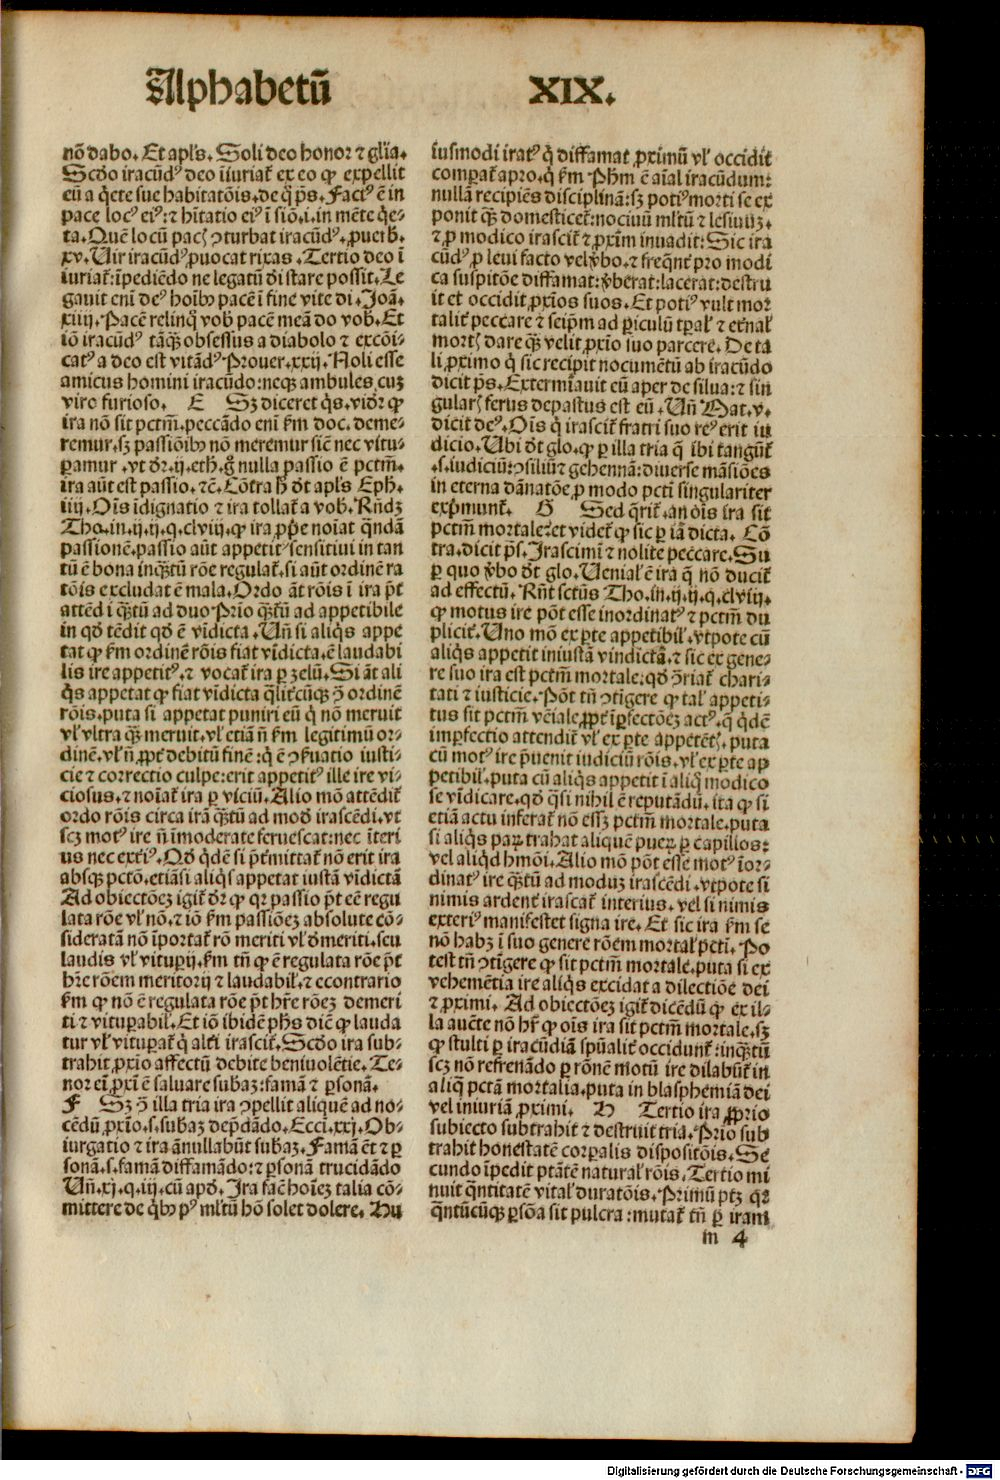 Alphabetū XIX.
nō dabo. Et apl's. Soli deo honor ⁊ gl'ia.
Scd'o iracūdꝰ deo īiuriat᷑ ex eo ꝙ expellit
eū a q̇ete sue habitatōis. de q̇ ps̄. Facꝰ ē in
pace locꝰ eiꝰ: ⁊ hītatio eiꝰ ī siō. i. in mēte q̇e⸗
ta. Quē locū pac̨ ꝯturbat iracūdꝰ. ꝓuerb̄.
xv. Uir iracūdꝰ ꝓuocat rixas. Tertio deo ī
iuriat᷑: īpediēdo ne legatū d̄i stare possit. Le
gauit eni deꝰ hoīb pacē ī fine vite di. Joā.
xiiij. Pacē relinq̄ vob̄ pacē meā do vob̄. Et
iō iracūdꝰ tāq̄ʒ obsessus a diabolo ⁊ excōi⸗
catꝰ a deo est vitādꝰ Prouer. xxij. Noli esse
amicus homini iracūdo: neqʒ ambules cuʒ
viro furioso. E Sʒ diceret q̇s. vid'r ꝙ
ira nō sit pctm̄. peccādo eni k̄m doc. deme⸗
remur. sʒ passiōib nō meremur sic̄ nec vitu⸗
ꝑamur. vt d̄r. ij. eth. g̊ nulla passio ē pctm̄.
ira aūt est passio. ⁊c̄. Cōtra h̄ d̄t apl's Eph.
iiij. Oīs īdignatio ⁊ ira tollat᷑ a vob̄. Rn̄dʒ
Tho. in. ij. ij. q. clviij. ꝙ ira ꝓp̄e noīat q̄ndā
passionē. passio aūt appetitꝰ sensitiui in tan
tū ē bona inq̄ʒtū rōe regulat᷑. si aūt ordinē ra
tōis excludat ē mala. Ordo āt rōis ī ira p̄t
attēd i q̄ʒtū ad duo Prio q̄ʒtū ad appetibile
in qd' tēdit qd' ē vīdicta. Un̄ si aliq̇s appe
tat ꝙ k̄m ordinē rōis fiat vīdicta. ē laudabi
lis ire appetitꝰ. ⁊ vocat᷑ ira ꝑ zelū. Si āt ali
q̇s appetat ꝙ fiat vīdicta q̇lit̄cūqʒ ꝯ̄ ordinē
rōis. puta si appetat puniri eū q̇ nō meruit
vl' vltra q̄ʒ meruit. vl' etiā n̄ k̄m legitimū or⸗
dinē. vl' n̄ ꝓpt̄ debitū finē: q̇ ē ꝯẜuatio iusti⸗
cie ⁊ correctio culpe: erit appetitꝰ ille ire vi⸗
ciosus. ⁊ noīat᷑ ira ꝑ viciū. Alio mō attēdit᷑
ordo rōis circa irā q̄ʒtū ad mod' irascēdi. vt
scʒ motꝰ ire n̄ īmoderate feruescat: nec īteri
us nec ext̄iꝰ. Qd' q̇dē si p̄t̄mittat᷑ nō erit ira
absqʒ pctō. etiāsi aliq̇s appetat iustā vīdictā
Ad obiectōeʒ igit᷑ d̄r ꝙ qꝛ passio p̄t eē regu
lata rōe vl' nō. ⁊ iō k̄m passiōeʒ absolute cō⸗
sideratā nō īportat᷑ rō meriti vl' d'meriti. seu
laudis vl' vituꝑij. k̄m tn̄ ꝙ ē regulata rōe p̄t
hr̄e rōem meritorij ⁊ laudabil'. ⁊ econtrario
k̄m ꝙ nō ē regulata rōe p̄t hr̄e rōeʒ demeri
ti ⁊ vituꝑabil'. Et iō ibidē ph̄s dic̄ ꝙ lauda
tur vl' vituꝑat᷑ q̇ alit̄ irascit᷑. Scd'o ira sub⸗
trahit ꝓxīo affectū debite beniuolētie. Te⸗
nor eī ꝓxī ē saluare subaʒ: famā ⁊ ꝑsonā.
F Sʒ ꝯ̄ illa tria ira ꝯpellit aliquē ad no⸗
cēdū ꝓxīo. s. subaʒ dep̄dādo. Ecci. xxj. Ob⸗
iurgatio ⁊ ira ānullabūt subaʒ. Famā ēt ⁊ ꝑ
sonā. s. famā diffamādo: ⁊ ꝑsonā trucidādo
Un̄. xj. q. iij. cū apd'. Ira fac̄ hoīeʒ talia cō⸗
mittere de q̇b pꝰ ml'tū hō solet dolere. Hu
iusmodi iratꝰ q̇ diffamat ꝓximū vl' occidit
comꝑat᷑ apro. q̇ k̄m Ph̄m ē aīal iracūdum:
nullā recipiēs disciplinā: sʒ potiꝰ morti se ex
ponit q̄ʒ domesticet᷑: nociuū ml'tū ⁊ lesiuūʒ.
⁊ ꝓ modico irascit᷑ ⁊ ꝓxīm inuadit: Sic ira
cūdꝰ ꝓ leui facto vel v̄bo. ⁊ freq̄nt̄ pro modi
ca suspitōe diffamat: v̄berat: lacerat: destru
it et occidit ꝓxīos suos. Et potiꝰ vult mor
talit̄ peccare ⁊ seip̄m ad ꝑiculū tꝑal' ⁊ et̄nal'
mort̨ dare q̄ʒ velit ꝓxīo suo parcere. De ta
li ꝓximo q̇ sic recipit nocumētū ab iracūdo
dicit ps̄. Extermīauit eū aper de silua: ⁊ sin
gular̨ ferus depastus est eū. Un̄ Mat. v.
dicit deꝰ. Oīs q̇ irascit᷑ fratri suo reꝰ erit iu
dicio. Ubi d̄t glo. ꝙ ꝑ illa tria q̄ ibi tangūt᷑
.s. iudiciū: ꝯsiliū ⁊ gehennā: diuerse māsiōes
in eterna dānatōe ꝓ modo pcti singulariter
exp̄munt᷑. G Sed q̄rit᷑. an oīs ira sit
pctm̄ mortale: et videt᷑ ꝙ sic ꝑ iā dicta. Cō
tra. dicit ps̄. Irascimī ⁊ nolite peccare. Su
ꝑ quo v̄bo d̄t glo. Uenial' ē ira q̄ nō ducit᷑
ad effectū. Rn̄t sctūs Tho. in. ij. ij. q. clviij.
ꝙ motus ire pōt esse inordinatꝰ ⁊ pctm̄ du
plicit̄. Uno mō ex ꝑte appetibil'. vtpote cū
aliq̇s appetit iniustā vindictā. ⁊ sic ex gene⸗
re suo ira est pctm̄ mortale: qd' ꝯ̄riat᷑ chari⸗
tati ⁊ iusticie. Pōt tn̄ ꝯtīgere ꝙ tal' appeti⸗
tus sit pctm̄ vēiale ꝓpt̄ īꝑfectōeʒ actꝰ. q̄ q̇dē
imꝑfectio attendit᷑ vl' ex ꝑte appetēt̨. puta
cū motꝰ ire p̄uenit iudiciū rōis. vl' ex ꝑte ap
petibil'. puta cū aliq̇s appetit ī aliq̊ modico
se vīdicare. qd' q̄si nihil ē reputādū. ita ꝙ si
etiā actu inferat᷑ nō eēʒ pctm̄ mortale. puta
si aliq̇s paꝝ trahat aliquē pueꝝ ꝑ capillos:
vel aliqd hmōi. Alio mō pōt esse motꝰ īor⸗
dinatꝰ ire q̄ʒtū ad moduʒ irascēdi. vtpote si
nimis ardent̄ irascat᷑ interius. vel si nimis
exteriꝰ manifestet signa ire. Et sic ira k̄m se
nō habʒ ī suo genere rōem mortal' pcti. Po
test tn̄ ꝯtīgere ꝙ sit pctm̄ mortale. puta si ex
vehemētia ire aliq̇s excidat a dilectiōe dei
⁊ ꝓximi. Ad obiectōeʒ igit᷑ dicēdū ꝙ ex il⸗
la auc̄te nō hr̄ ꝙ oīs ira sit pctm̄ mortale. sʒ
ꝙ stulti ꝑ iracūdiā spūalit̄ occidunt᷑: inq̄ʒtū
scʒ nō refrenādo ꝑ rōnē motū ire dilabūt᷑ in
aliq̄ pctā mortalia. puta in blasphemiā dei
vel iniuriā ꝓximi. H Tertio ira ꝓprio
subiecto subtrahit ⁊ destruit tria. Prio sub
trahit honestatē corꝑalis dispositōis. Se
cundo īpedit ptātē natural' rōis. Tertio mi
nuit q̄ntitatē vital' duratōis. Primū ptʒ qꝛ
q̄ntūcūqʒ ꝑsōa sit pulcra: mutat᷑ tn̄ ꝑ iram
m 4
Digitalisierung gefördert durch die Deutsche Forschungsgemeinschaft - DFG